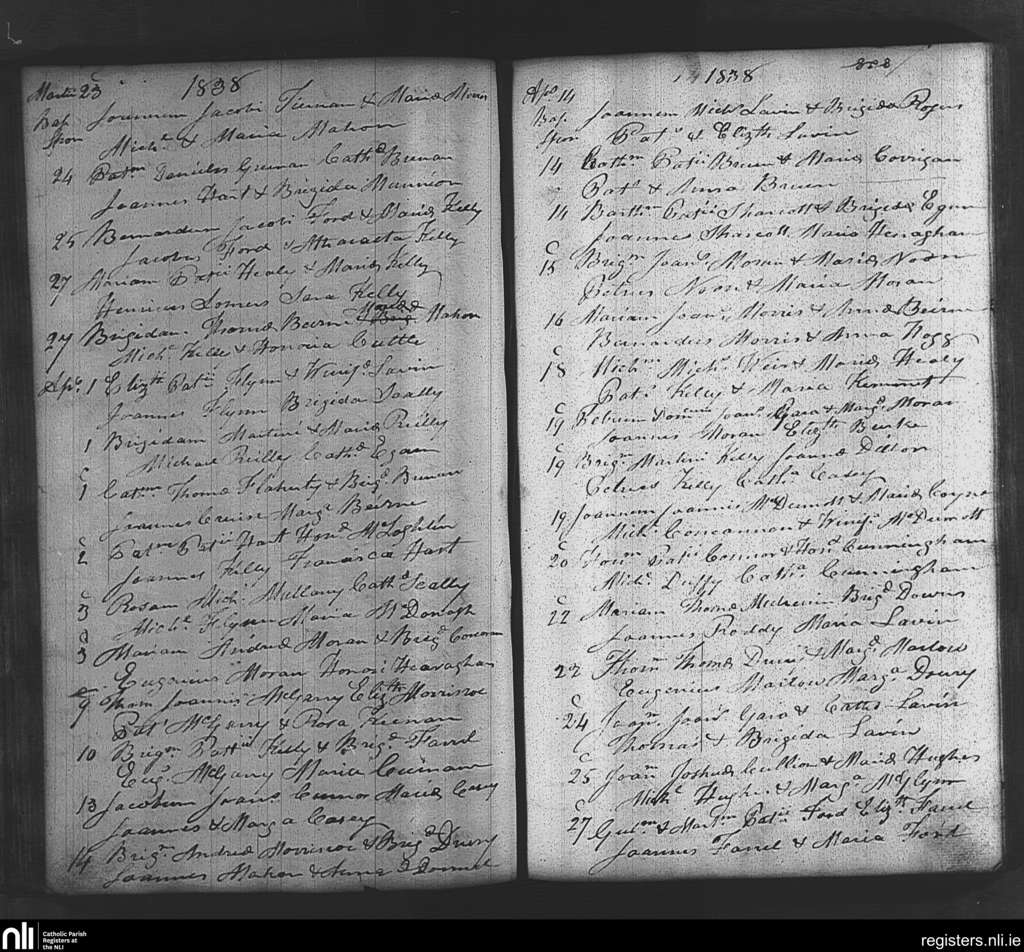 Martii 23 1838
Bap Jacobi Tiernan & Maria
Spon Michl & Maria Mahon
24 Patm Danielis Greenan Cathe Brenan
Joannes Hart & Brigida Mannion
25 Bernardum Jacobi Ford & Maria Kelly
Jacobus Ford & Attracta Kelly
27 Mariam Patii Healy & Maria Kelly
Henricus Somers Sara Kelly
27 Brigidam Thoma Beirne Maria Mahon
Michl & Honoria Cuttle
Apr. 1 Elizth Patii Flynn & Winifd Lavin
Joannes Flynn Brigida Scally
1 Brigidam Martini & Maria Reilly
Michael Reilly Cathe Egan
C
1 Catm Thoma Flaherty & Brigd Brenan
Joannes Cruise Marge Beirne
C
2 Patm Patii Hart Hond McLoghlin
Joannes Kelly Francisca Hart
C
3 Rosam Michl Mullany Cathe Scally
Michl Flynn Maria McDonogh
C
3 Mariam Andrea Moran & Brigd Corcoran
Eugenius Moran Honor Heavaghan
C
9 Thom Joannis McGarry Elizth Morrisroe
Patt McGarry & Rosa Keenan
10 Brigm Patii Kelly & Brigd Farrel
Eug. McGarry Maria
13 Jacobum Joans Connor Maria Casey
Joannes & Marga Casey
14 Brigm Andrea Morrisroe & Brigd Drury
Joannes Mahon & Anna
1838
Apl 14 Joannem Michl Lavin & Brigida Rogers
Bap.
Spon Pat & Elizth Lavin
14 Cathm Patii Bruen & Maria Corrigan
Patt & Anna Bruen
14 Barthm Patii Sharcott & Brigida Egan
Joannes Sharcott Maria Heraghan
C
15 Brigm Joans Moran & Maria Noon
Petrus Noon & Maria Moran
16 Mariam Joans Morris & Anna Beirne
Bernardus Morris & Anna Hogg
C
18 Michm Michl Weir & Maria Healy
Patt Kelly & Maria
C
19 Petrum & Joans Gara & Margd Moran
Joannes Moran Elizth Burke
C
19 Brigm Martini Kelly Joanna Dillon
Petrus Kelly Catha Casey
19 Joannem Joannis McDermott & Maria Coyne
Michl Concannon & Winifd McDermott
C
20 Honm Patii Connor & Hond Cunningham
Michl Duffy Catha Cunningham
C
22 Mariam Thoma Mulrenin Brigd Downs
Joannes Roddy Maria Lavin
22 Thom Thoma & Margd Harlow
Eugenius Harlow Marga Drury
C
24 Joanm Joans Gara & Catha Lavin
Thomas & Brigida Lavin
C
25 Joanm Joshua Cullion & Maria Hughes
Michl Hughes & Marga McGlynn
C
27 Gulm & Martm Patii Ford Elizth Farrel
Joannes Farrel & Maria Ford
nli Catholic Parish
Registers at
the NLI
registers.nli.ie